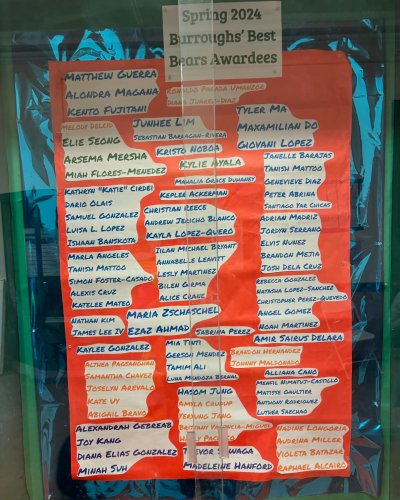 Spring 2024
Burroughs' Best
Bears Awardees
Matthew Guerra
Alondra Magana
Kento Fujitani
Melody Delcid
Elie Seong
Arsema Mersha
Miah Flores-Menedez
Kathryn "Katie" Cirdei
Dario Olais
Samuel Gonzalez
Luisa L. Lopez
Ishaan Banskota
Marla Angeles
Tanish Mattoo
Simon Foster-Casado
Alexis Cruz
Katelee Mateo
Nathan Kim
James Lee IV
Kaylee Gonzalez
Althea Pagsanghan
Samantha Chavez
Joselyn Arevalo
Kate Uy
Abigail Bravo
Alexandrah Gebreab
Joy Kang
Diana Elias Gonzalez
Minah Suh
Ronaldo Parada Umanzor
Diana Juarez-Diaz
Junhee Lim
Sebastian Barragan-Rivera
Kristo Noboa
Kylie Ayala
Mahalia Grace Duhaney
Keplee Ackerman
Christian Reece
Andrew Jericho Blanco
Kayla Lopez-Quero
Ilan Michael Bryant
Annabelle Leavitt
Lesly Martinez
Bilen Girma
Alice Crane
Maria Zschaschel
Ezaz Ahmad
Sabrina Perez
Mia Tinti
Gerson Mendez
Tamim Ali
Luna Mendoza Bernal
Hasom Jung
Amyla Crudup
Yeryung Jang
Brittany Valencia-Miguel
Pacheco
Trevor
Madeleine Hanford
Tyler Ma
Maxamilian Do
Giovani Lopez
Janelle Barajas
Tanish Mattoo
Genevieve Diaz
Peter Abrina
Santiago Yar Chicas
Adrian Madriz
Jordyn Serrano
Elvis Nunez
Brandon Mejia
Josh Dela Cruz
Rebecca Gonzalez
Natasha Lopez-Sanchez
Christopher Perez-Quevedo
Angel Gomez
Noah Martinez
Amir Sairus Delara
Brandon Hernandez
Johnny Maldonado
Alliana Cano
Mentil Nimatuj-Castillo
Matisse Gaultier
Anthony Rodriguez
Luther Saechao
Nadine Longoria
Audrina Miller
Violeta Batazar
Raphael Alcairo